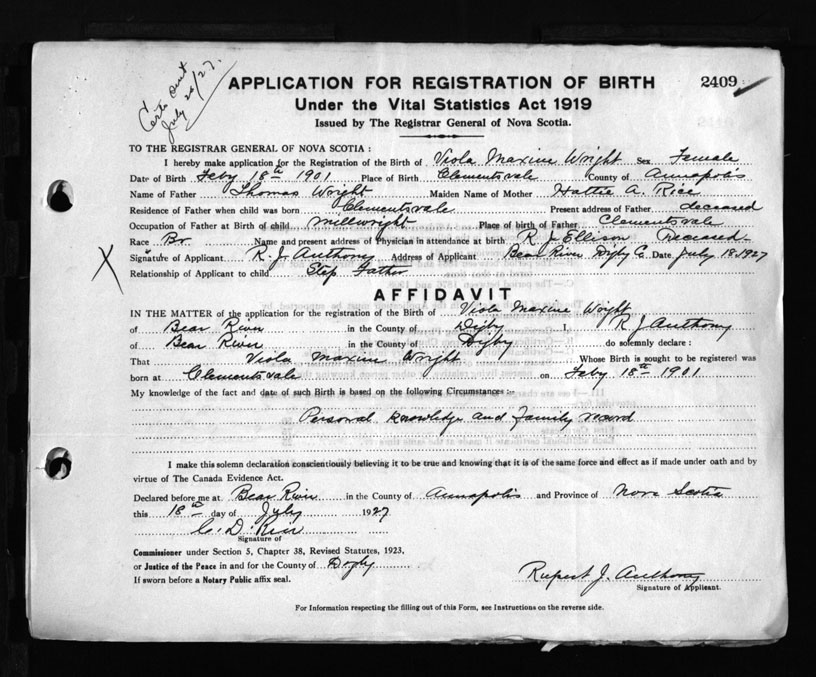 Certs sent
July 26/27.
APPLICATION FOR REGISTRATION OF BIRTH 2409
Under the Vital Statistics Act 1919
Issued by The Registrar General of Nova Scotia.
TO THE REGISTRAR GENERAL OF NOVA SCOTIA :
I hereby make application for the Registration of the Birth of Viola Maxine Wright Sex Female
Date of Birth Feby 18th 1901 Place of Birth Clementsvale County of Annapolis
Name of Father Thomas Wright Maiden Name of Mother Hattie A. Rice
Residence of Father when child was born Clementsvale Present address of Father deceased
Occupation of Father at Birth of child millwright Place of birth of Father Clementsvale
Race Br. Name and present address of Physician in attendance at birth R J Ellison Deceased
X Signature of Applicant R. J. Anthony Address of Applicant Bear River Digby Co. Date July 18. 1927
Relationship of Applicant to child Step Father
AFFIDAVIT
IN THE MATTER of the application for the registration of the Birth of Viola Maxine Wright
of Bear River in the County of Digby I, R J Anthony
of Bear River in the County of Digby do solemnly declare :
That Viola Maxine Wright Whose Birth is sought to be registered was
born at Clementsvale on Feby 18th 1901
My knowledge of the fact and date of such Birth is based on the following Circumstances :-
Personal knowledge and Family record
I make this solemn declaration conscientiously believing it to be true and knowing that it is of the same force and effect as if made under oath and by
virtue of The Canada Evidence Act.
Declared before me at Bear River in the County of Annapolis and Province of Nova Scotia
this 18th day of July 1927
C. D. Rice
Signature of
Commissioner under Section 5, Chapter 38, Revised Statutes, 1923.
or Justice of the Peace in and for the County of Digby
If sworn before a Notary Public affix seal.
Rupert J. Anthony
Signature of Applicant.
For Information respecting the filling out of this Form, see Instructions on the reverse side.